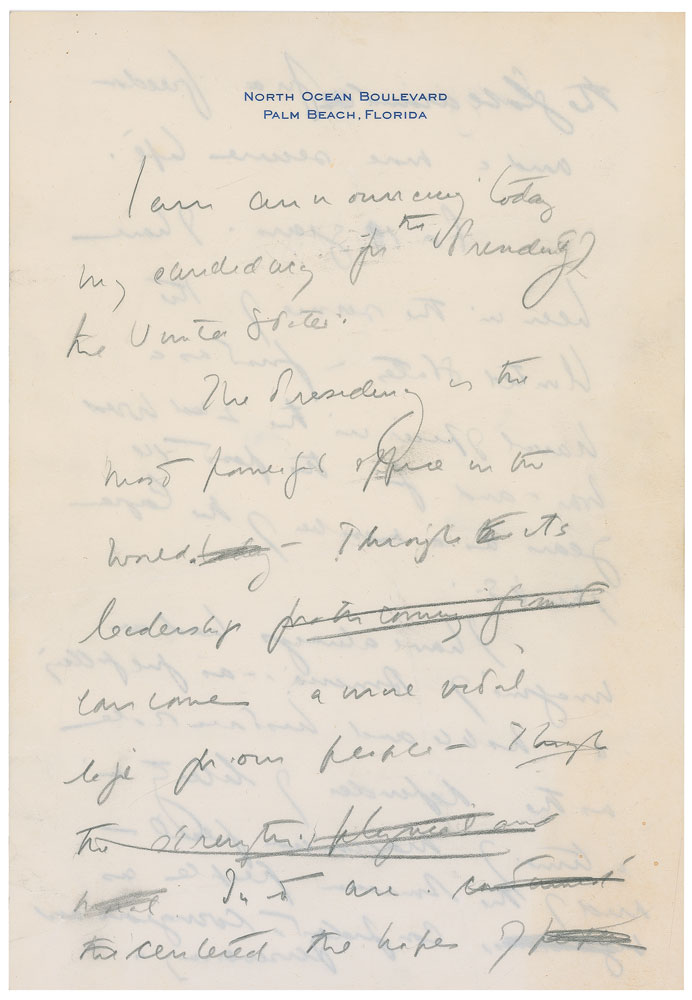 NORTH OCEAN BOULEVARD
PALM BEACH, FLORIDA
I am announcing today
my candidacy for the Presidency of
the United States.
The Presidency is the
most powerful office in the
world. today – Through its
leadership coming from it
can come a more vital
life for our people – Through
the strength, physical and
moral In it are
the centered the hopes of